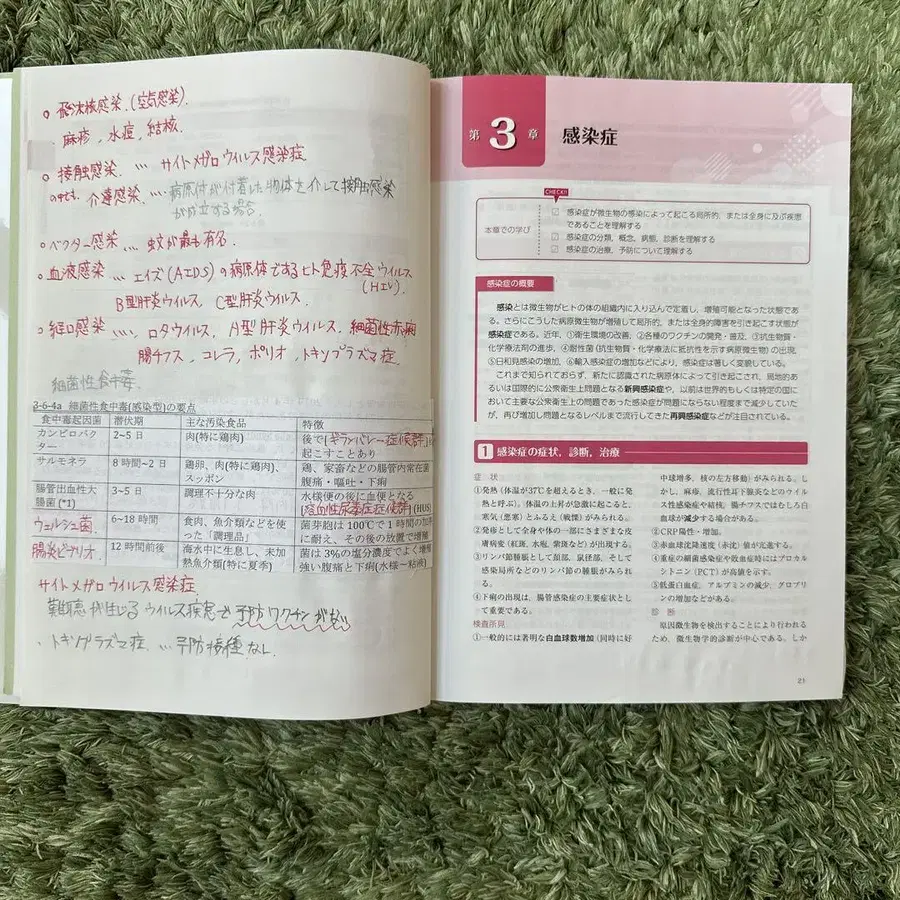 ○ 飛沫核感染.(空気感染).
麻疹,水痘,結核.
○ 接触感染.… サイトメガロウイルス感染症
のせる. 介達感染.… 病原体が付着した物体を介して接触感染
が成立する場合.
○ベクター感染… 蚊が最も有名.
○血液感染… エイズ(AIDS)の病原体であるヒト免疫不全ウイルス
(HIV).
B型肝炎ウイルス, C型肝炎ウイルス.
○経口感染…. ロタウイルス, A型肝炎ウイルス, 細菌性赤痢
腸チフス, コレラ, ポリオ, トキソプラズマ症.
細菌性食中毒.
3-6-4a 細菌性食中毒(感染型)の要点
食中毒起因菌 潜伏期 主な汚染食品 特徴
カンピロバク 2~5日 肉(特に鶏肉) 後で[ギランバレー症候群]
ター 起こすことあり
サルモネラ 8時間~2日 鶏卵、肉(特に鶏肉)、 鶏、家畜などの腸管内常在菌
スッポン 腹痛・嘔吐・下痢
腸管出血性大 3~5日 調理不十分な肉 水様便の後に血便となる
腸菌(*1) [溶血性尿毒症症候群](HUS
ウェルシュ菌 6~18時間 食肉、魚介類などを使 菌芽胞は100℃で1時間の加熱
った「調理品」 に耐え、その後の放置で増殖
腸炎ビブリオ 12時間前後 海水中に生息し、未加 菌は3%の塩分濃度でよく増殖
熱魚介類(特に夏季) 強い腹痛と下痢(水様~粘液)
サイトメガロウイルス感染症
難聴が生じるウイルス疾患で予防ワクチンがない
・トキソプラズマ症.…予防接種なし.
第3章 感染症
CHECK!!
本章での学び
☑ 感染症が微生物の感染によって起こる局所的,または全身に及ぶ疾患
であることを理解する
☑ 感染症の分類,概念,病態,診断を理解する
☑ 感染症の治療,予防について理解する
感染症の概要
感染とは微生物がヒトの体の組織内に入り込んで定着し,増殖可能となった状態であ
る。さらにこうした病原微生物が増殖して局所的,または全身的障害を引き起こす状態が
感染症である。近年,①衛生環境の改善,②各種のワクチンの開発・普及,③抗生物質・
化学療法剤の進歩,④耐性菌(抗生物質・化学療法に抵抗性を示す病原微生物)の出現,
⑤日和見感染の増加,⑥輸入感染症の増加などにより,感染症は著しく変貌している。
これまで知られておらず,新たに認識された病原体によって引き起こされ,局地的あ
るいは国際的に公衆衛生上問題となる新興感染症や,以前は世界的もしくは特定の国に
おいて主要な公衆衛生上の問題であった感染症が問題にならない程度まで減少していた
が,再び増加し問題となるレベルまで流行してきた再興感染症などが注目されている。
1 感染症の症状,診断,治療
症 状
①発熱(体温が37℃を超えるとき,一般に発
熱と呼ぶ)。体温の上昇が急激に起こると,
寒気(悪寒)とふるえ(戦慄)がみられる。
②発疹として全身や体の一部にさまざまな皮
膚病変(紅斑,水疱,紫斑など)が出現する。
③リンパ節腫脹として頚部,鼠径部,そして
感染局所などのリンパ節の腫脹がみられ
る。
④下痢の出現は,腸管感染症の主要症状とし
て重要である。
検査所見
①一般的には著明な白血球数増加(同時に好
中球増多,核の左方移動)がみられる。しか
し,麻疹,流行性耳下腺炎などのウイル
ス性感染症や結核,腸チフスではむしろ白
血球が減少する場合がある。
②CRP陽性・増加。
③赤血球沈降速度(赤沈)値が亢進する。
④重症の細菌感染症や敗血症時にはプロカル
シトニン(PCT)が高値を示す。
⑤低蛋白血症,アルブミンの減少,グロブリ
ンの増加などがある。
診 断
原因微生物を検出することにより行われる
ため,微生物学的診断が中心である。しか
21